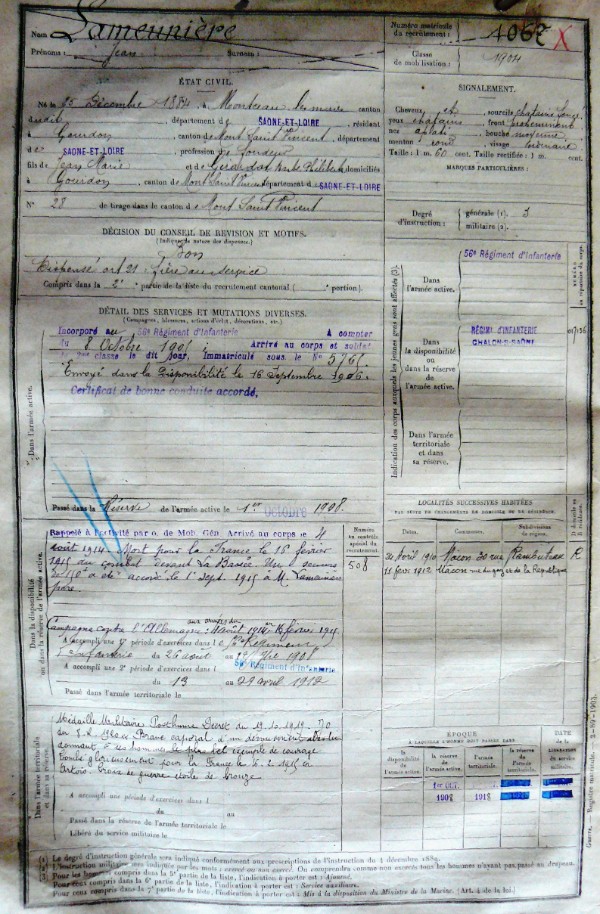 Nom Lameunière
Prénoms : Jean Surnom :
Numéro matricule du recrutement : 1067 X
Classe de mobilisation : 1904
ÉTAT CIVIL.
Né le 15 Décembre 1884, à Montceau les mines canton
dudit, département de SAONE-ET-LOIRE, résidant
à Gourdon, canton de Mont Saint Vincent, département
de SAONE-ET-LOIRE, profession de
fils de Jean Marie et de Girardot domiciliés
à Gourdon, canton de Mont Saint Vincent département de SAONE-ET-LOIRE
N° 28 de tirage dans le canton de Mont Saint Vincent
SIGNALEMENT.
Cheveux et sourcils châtains
yeux châtains front
nez bouche moyenne
menton rond visage ordinaire
Taille : 1 m. 60 cent. Taille rectifiée : 1 m. cent.
MARQUES PARTICULIÈRES :
Degré d'instruction : générale (1). 3
militaire (2).
DÉCISION DU CONSEIL DE REVISION ET MOTIFS.
(Indiquer la nature des dispenses.)
Bon
Dispensé art 21. Frère au service
Compris dans la 2e partie de la liste du recrutement cantonal ( portion).
DÉTAIL DES SERVICES ET MUTATIONS DIVERSES.
(Campagnes, blessures, actions d'éclat, décorations, etc.)
Dans l'armée active.
Incorporé au 56e Régiment d'Infanterie A compter
du 8 Octobre 1905 ; Arrivé au corps et soldat
de 2me classe le dit jour, Immatriculé sous le No 5761.
Envoyé dans la Disponibilité le 18 Septembre 1906.
Certificat de bonne conduite accordé.
Passé dans la Réserve de l'armée active le 1er Octobre 1908.
Indication des corps auxquels les jeunes gens sont affectés (3).
Dans l'armée active.
56e Régiment d'Infanterie
Dans la disponibilité ou dans la réserve de l'armée active.
RÉGIMT D'INFANTERIE
CHALON-S-SAÔNE
Dans l'armée territoriale et dans sa réserve.
LOCALITÉS SUCCESSIVES HABITÉES
PAR SUITE DE CHANGEMENTS DE DOMICILE OU DE RÉSIDENCE.
Dates. Communes. Subdivisions de région. D. domicile ou R. résidence.
20 Avril 1910 Mâcon 20 rue Rambuteau R
11 fevr 1912 Mâcon de la République
Dans la disponibilité ou dans la réserve de l'armée active.
Rappelé à l'activité par o. de Mob. Gén. Arrivé au corps le 4
août 1914. Mort pour la France le 16 février
1915 au combat devant La Bassée. Un secours
de 150f a été accordé le 1er Sept. 1915 à M. Lameunière
père.
Numéro au contrôle spécial du recrutement 508
Campagne contre l'Allemagne : aux armées du 4 août 1914 au 16 février 1915
A accompli une 1re période d'exercices dans le Régiment
d'Infanterie du 26 août au 1908
A accompli une 2e période d'exercices dans l Régiment d'Infanterie
du 13 au 29 avril 1912
Passé dans l'armée territoriale le
Dans l'armée territoriale et dans sa réserve.
Médaille Militaire Posthume Décret du
1920 Brave caporal d'un dévouement absolu
donnant à ses hommes le plus bel exemple de courage
Tombé glorieusement pour la France le 16.2.1915 en
Artois. Croix de guerre étoile de bronze.
A accompli une période d'exercices dans l
du au
Passé dans la réserve de l'armée territoriale le
Libéré du service militaire le
ÉPOQUE
À LAQUELLE L'HOMME DOIT PASSER DANS
la disponibilité de l'armée active. la réserve de l'armée active. l'armée territoriale. la réserve de l'armée territoriale.
DATE de la LIBÉRATION du service militaire.
1er OCT.
1908 1918
(1) Le degré d'instruction générale sera indiqué conformément aux prescriptions de l'instruction du 4 décembre 1889.
Pour ceux compris dans la 6e partie de la liste, l'indication à porter est : Service auxiliaire.
Pour ceux compris dans la 7e partie de la liste, l'indication à porter est : Mis à la disposition du Ministre de la Marine. (Art. 4 de la loi.)